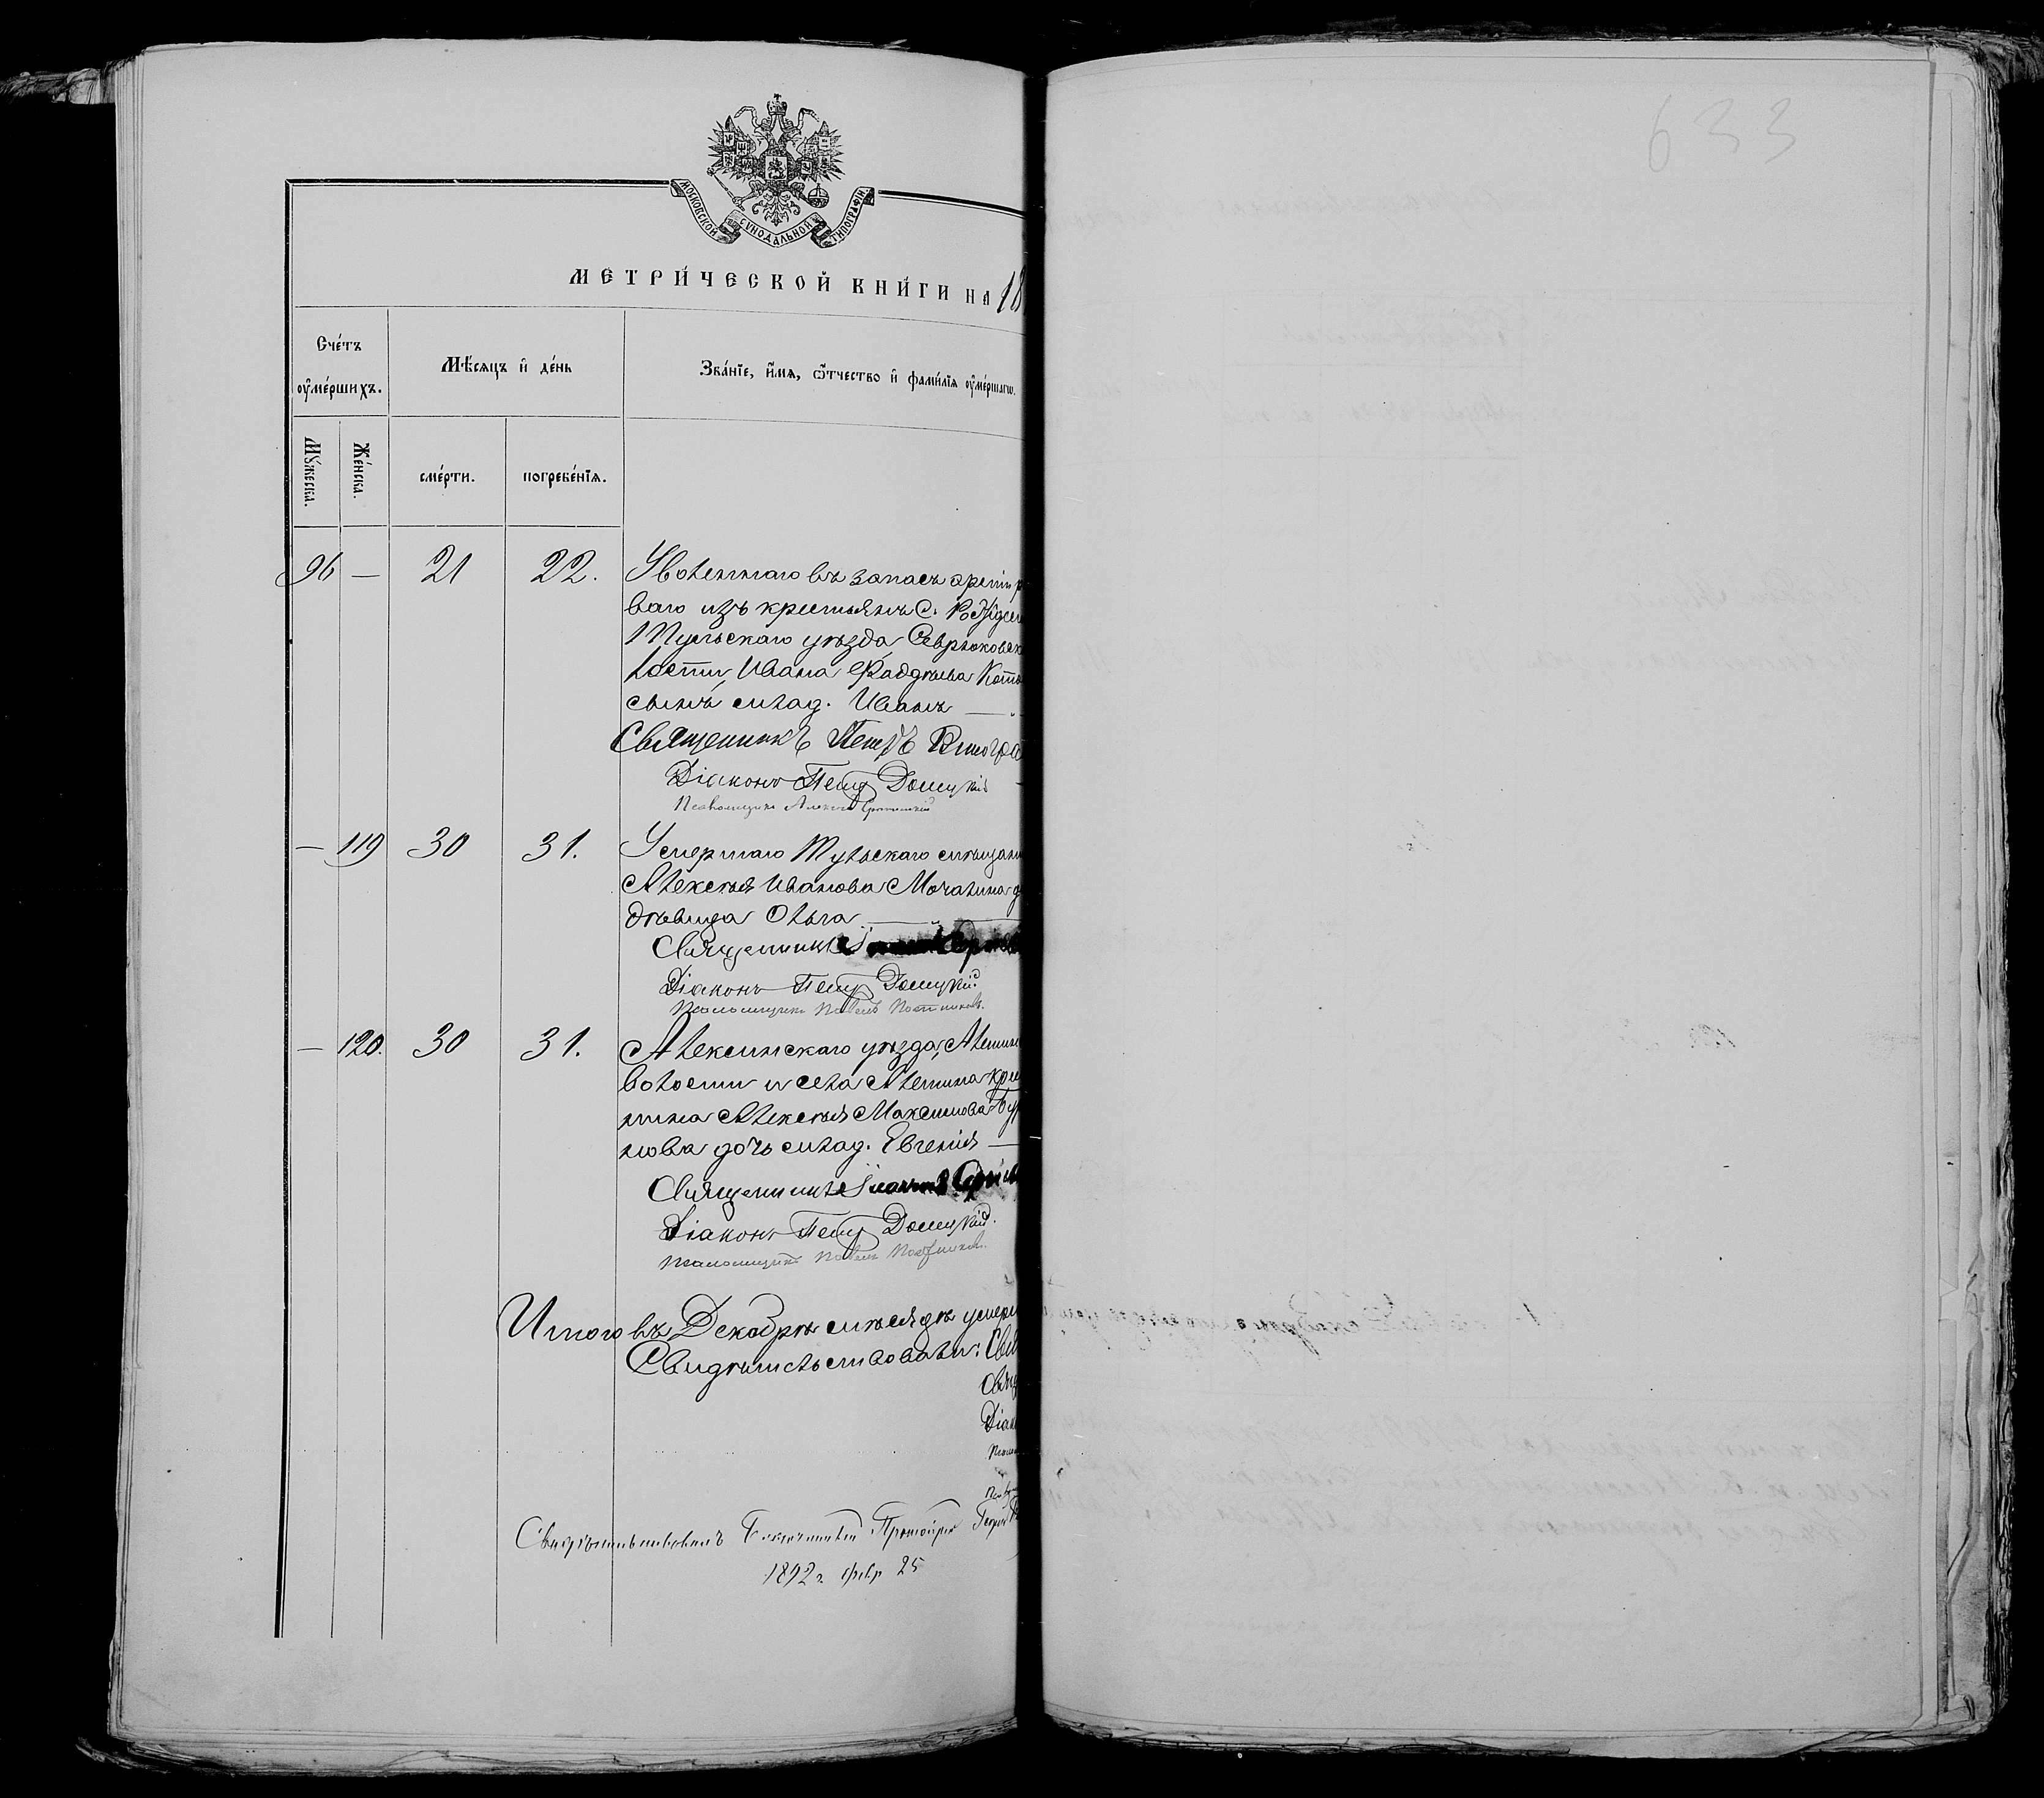 633
МОСКОВСКОЙ СѴНОДАЛЬНОЙ ТИПОГРАФІИ
МЕТРИ́ЧЕСКОЙ КНИ́ГИ НА 18
Сче́тъ оу҆ме́ршихъ.
Мѣ́сяцъ и҆ де́нь
Зва́нїе, и҆́мѧ, ѻ҆́тчество и҆ фами́лїѧ оу҆ме́ршагѡ.
Мꙋ́жеска.
Же́нска.
сме́рти.
погребе́нїѧ.
96 — 21 22. Уволеннаго въ запасъ арміи р
ваго изъ крестьянъ С.
Тульскаго уѣзда, Севрюковск
лости, Ивана Фаддѣева
сынъ млад. Иванъ —
Священникъ Петръ Виногра
Діаконъ Петръ Донецкій
Псаломщикъ Алексѣй
— 119 30 31. Умершаго Тульскаго мѣщани
Алексѣя Иванова Мочалина д
дѣвица Ольга —
Священникъ
Діаконъ Петръ Донецкій
Псаломщикъ Павелъ Постниковъ.
— 120. 30 31. Алексинскаго уѣзда, Алешин
волости и села Алешина кре
нина Алексѣя Максимова Бур
нова дочь млад. Евгенія —
Священникъ Іоаннъ
Діаконъ Петръ Донецкій.
Псаломщикъ Павелъ Постниковъ.
Итого въ Декабрѣ мѣсяцѣ умерш
Свидѣтельствовали: Свя
Свящ
Діак
Псал
Свидѣтельствовалъ Благочинный Протоіерей Георгій
1892 г. февр 25